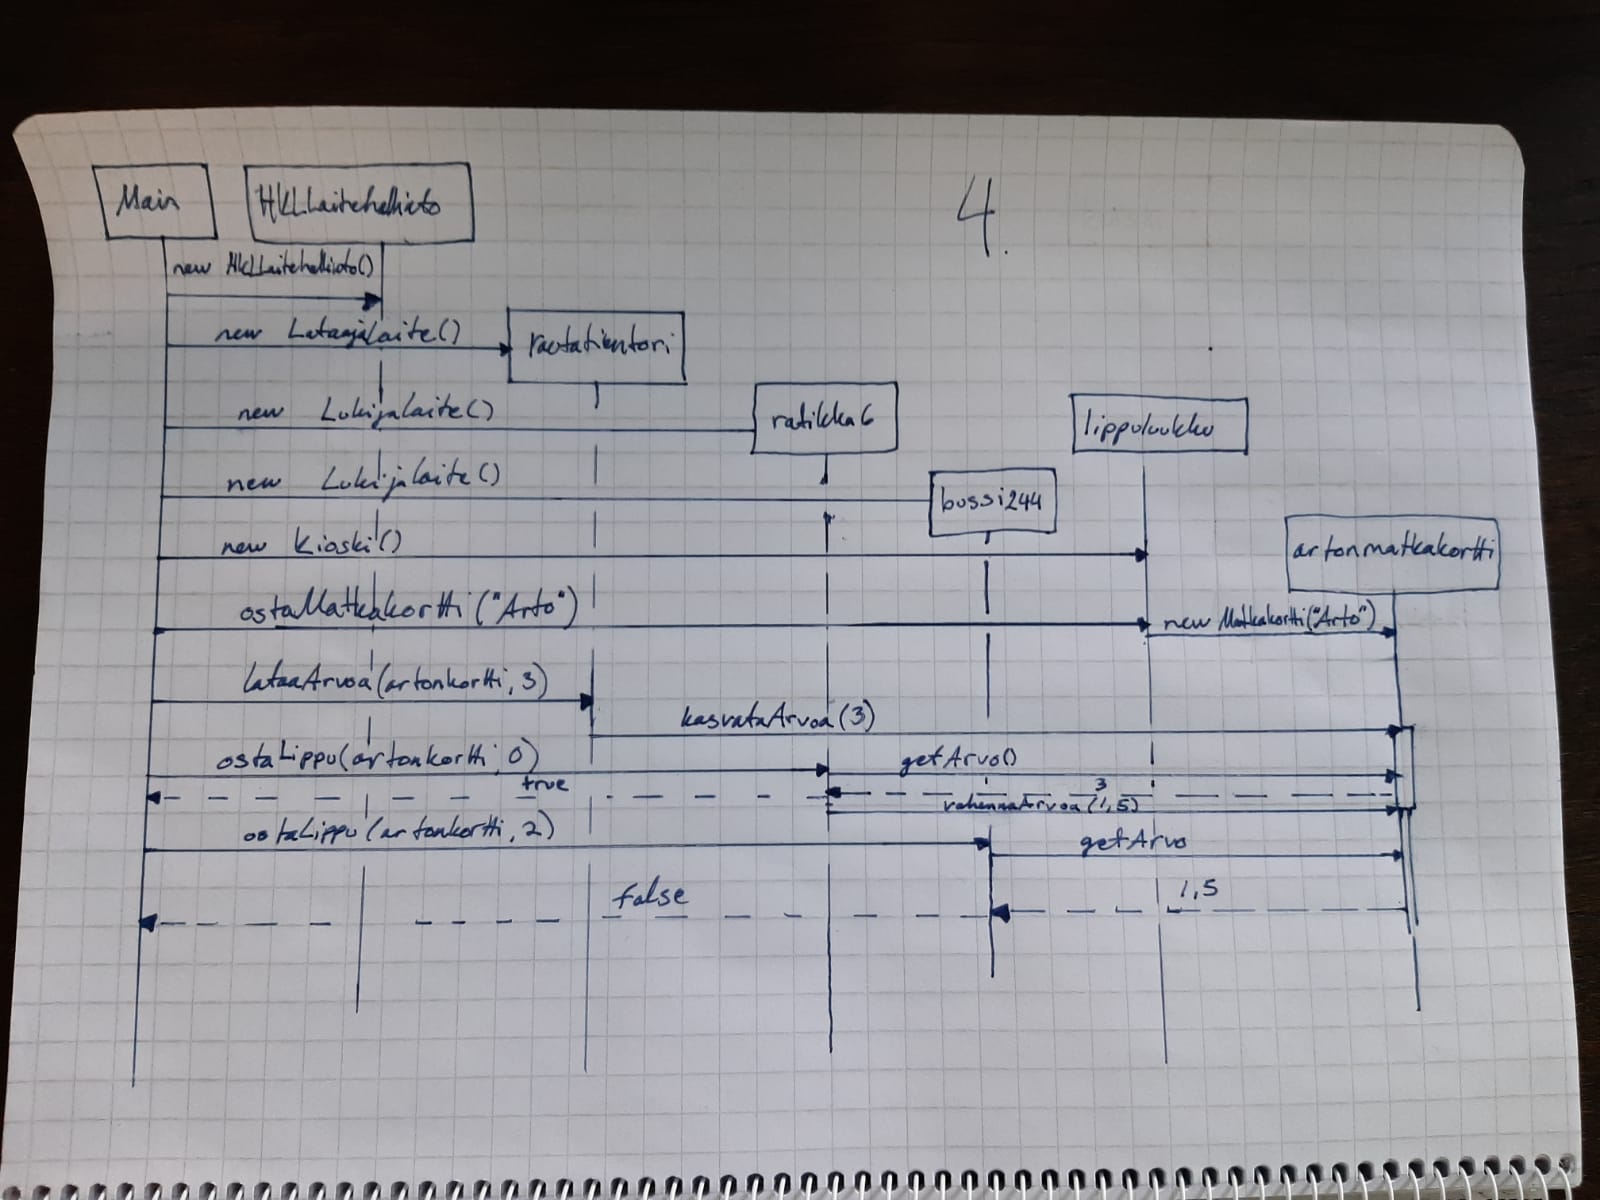 4.
Main
HKLLaitehallinto
new HKLLaitehallinto()
new Lataajalaite()
rautatientori
new Lukijalaite()
ratikka6
lippuluukku
new Lukijalaite()
bussi244
new Kioski()
artonmatkakortti
ostaMatkakortti("Arto")
new Matkakortti("Arto")
lataaArvoa(artonkortti, 3)
kasvataArvoa(3)
ostaLippu(artonkortti, 0)
getArvo()
true
3
vahennaArvoa(1,5)
ostaLippu(artonkortti, 2)
getArvo
false
1,5